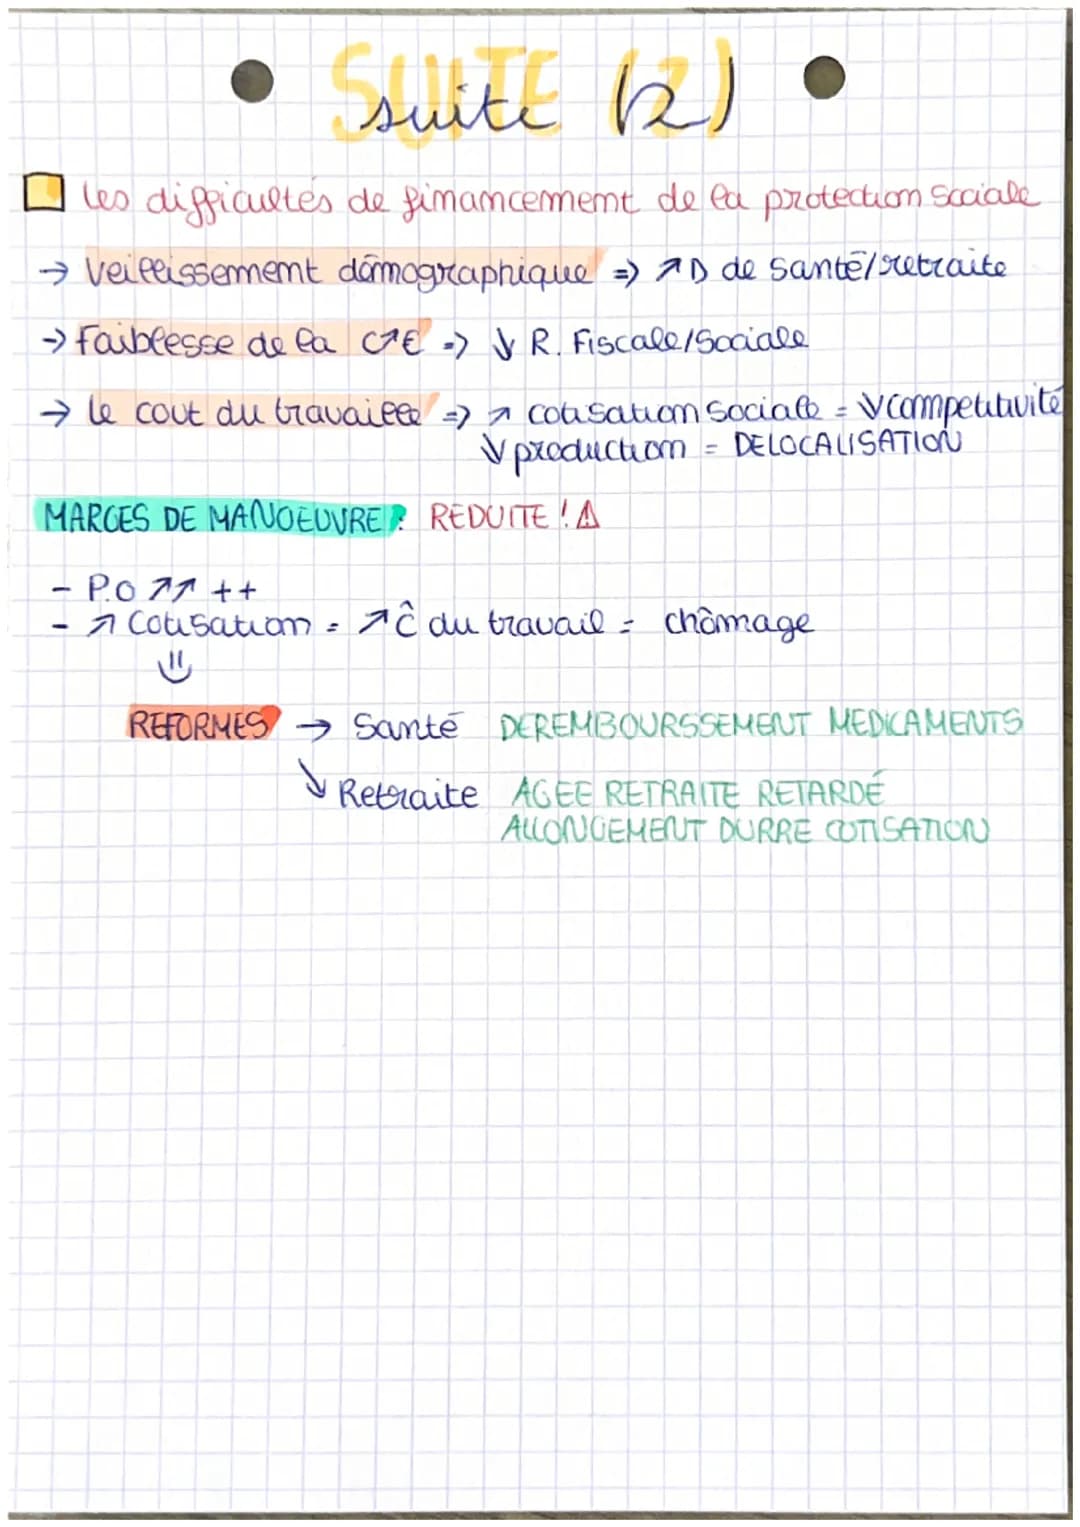 SUITE (2)
suite (2)
les difficultés de financement de la protection sociale
→ Veillissement démographique => ↗ D de santé/retraite
→ Faiblesse de la C↗€ => ↓ R. Fiscale/Sociale
→ le cout du travaille => ↗ cotisation sociale = ↓ compétitivité
↓ production = DELOCALISATION
MARGES DE MANOEUVRE : REDUITE ! ⚠
- P.O ↗↗ ++
- ↗ Cotisation = ↗ Ĉ du travail = chômage
⇓
REFORMES → Santé DEREMBOURSSEMENT MEDICAMENTS
↓ Retraite AGEE RETRAITE RETARDÉ
ALLONGEMENT DURRE COTISATION